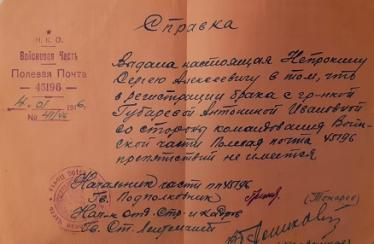 Справка
Н.К.О.
Войсковая Часть
Полевая Почта
-45196-
4. 01 1946
№
Выдана настоящая
Сергею Алексеевичу в том, что
в регистрации брака с гр-нкой
Губаревой Антониной Ивановной
со стороны командования Воин-
ской части Полевая почта 45196
препятствий не имеется
Начальник части пп 45196
Гв. Подполковник
Нач-к Отд. Стр. и Кадров
Гв. Ст. Лейтенант